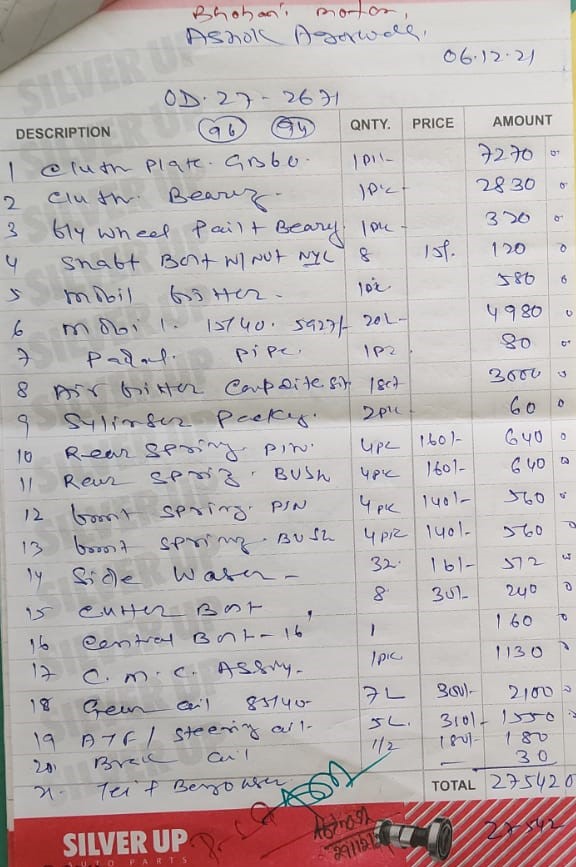 Bhobani motor,
Ashok Agarwal,
06.12.21
OD.27-2671
DESCRIPTION 96 94 QNTY. PRICE AMOUNT
1 Cluth Plate. GB60. 1pic- 7270 0
2 Cluth. Bearig. 1pic- 2830 0
3 Gly wheel Pailt Beary 1pic- 320 0
4 Shabt Bort W/NUT NYL 8 15/. 120 0
5 mobil 1pic 580 0
6 mobil. 15/40. 5927/- 20L- 4980 0
7 Pipe. 1pc 80 0
8 Air 1set 3000 0
9 Sylinser Packy. 2pic 60 0
10 Rear Spring. PIN. 4pc 160/- 640 0
11 Rear Sprig. BUSH 4pic 160/- 640 0
12 bront Spring. PIN 4pic 140/- 560 0
13 bront Spring. BUSH 4pic 140/- 560 0
14 Side Waser - 32. 16/- 512 0
15 Cutter Bort 8 30/- 240 0
16 Central Bort-16' 1 160 0
17 C.M.C. Assmy. 1pic 1130 0
18 Gear oil 85/140. 7L 300/- 2100 0
19 ATF/ Steering oil- 5L. 310/- 1550 0
20 Brek oil 1/2 180/- 180 0
21. — 30
TOTAL 27542 0
29/12/21
27542
SILVER UP
AUTO PARTS